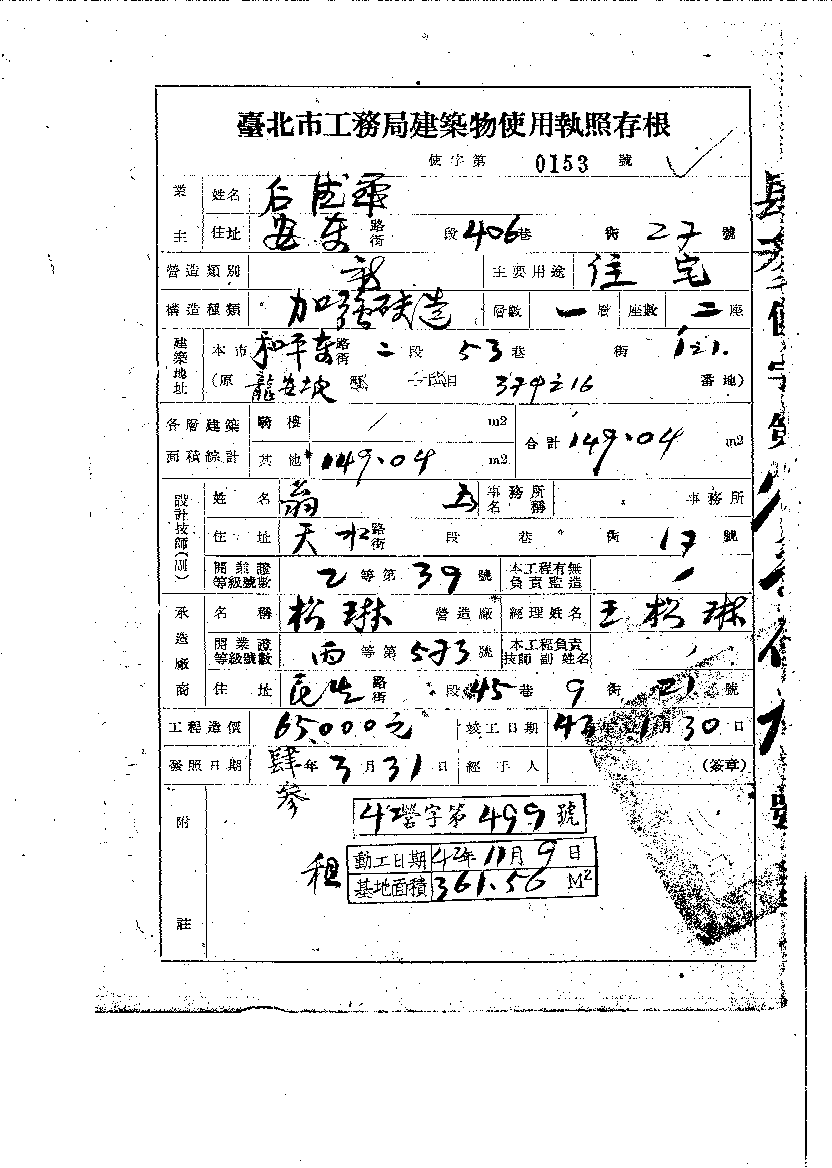 臺北市工務局建築物使用執照存根
使字第 0153 號
業主 姓名 石
住址 安東 路街 段 406 巷 衖 27 號
營造類別 新 主要用途 住宅
構造種類 加強磚造 層數 一 層 座數 二 座
建築地址 本市 和平東 路街 二 段 53 巷 衖 1.2.1.
(原 龍安坡 段 目 374之16 番地)
各層建築面積綜計 騎樓 / m2 合計 149.04 m2
其他 149.04 m2
設計技師(副) 姓名 翁 事務所名稱 事務所
住址 天水 路街 段 巷 衖 17 號
開業證等級號數 乙 等第 39 號 本工程有無負責監造 /
承造廠商 名稱 松琳 營造廠 經理姓名 王松琳
開業證等級號數 丙 等第 573 號 本工程負責技師副姓名 /
住址 民生 路街 段 45 巷 9 衖 21 號
工程造價 65,000元 竣工日期 43 年 1 月 30 日
發照日期 肆參 年 3 月 31 日 經手人 (簽章)
附註
42營字第 499 號
租
動工日期 42年 11月 9日
基地面積 361.56 M²